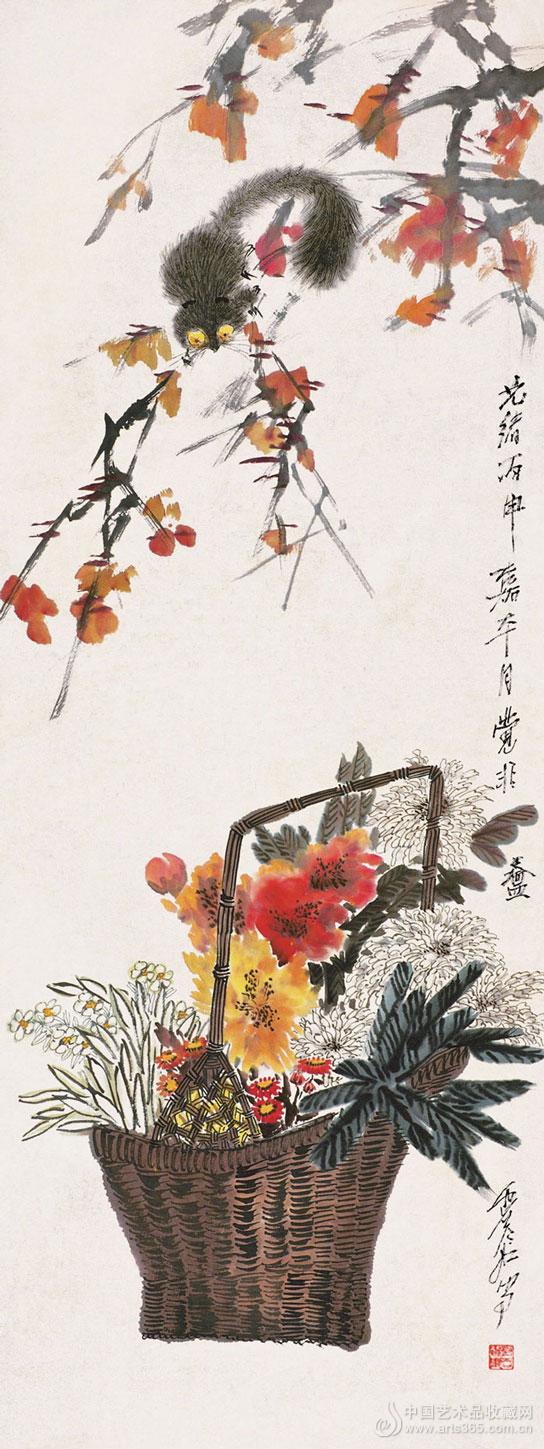 光緒丙申嘉平月覺非盦
中国艺术品收藏网
www.arts365.com.cn